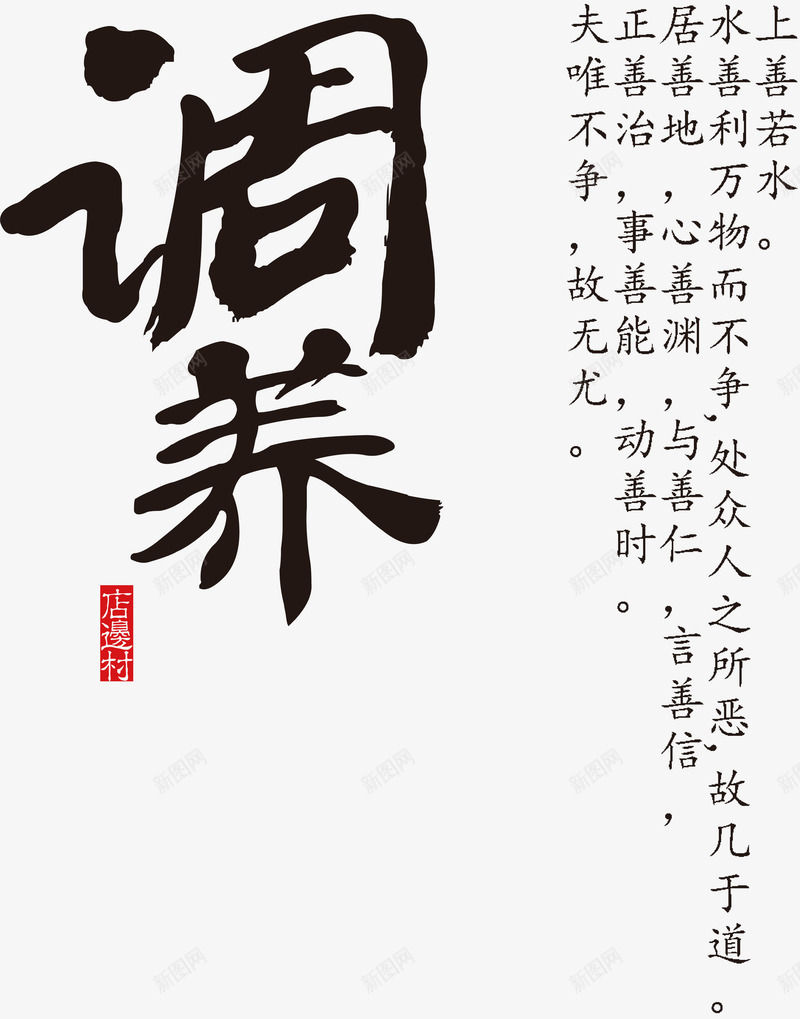 上善若水。
水善利万物而不争,处众人之所恶,故几于道。
居善地，心善渊，与善仁，言善信，
正善治，事善能，动善时。
夫唯不争，故无尤。
调养
店邊村
新图网